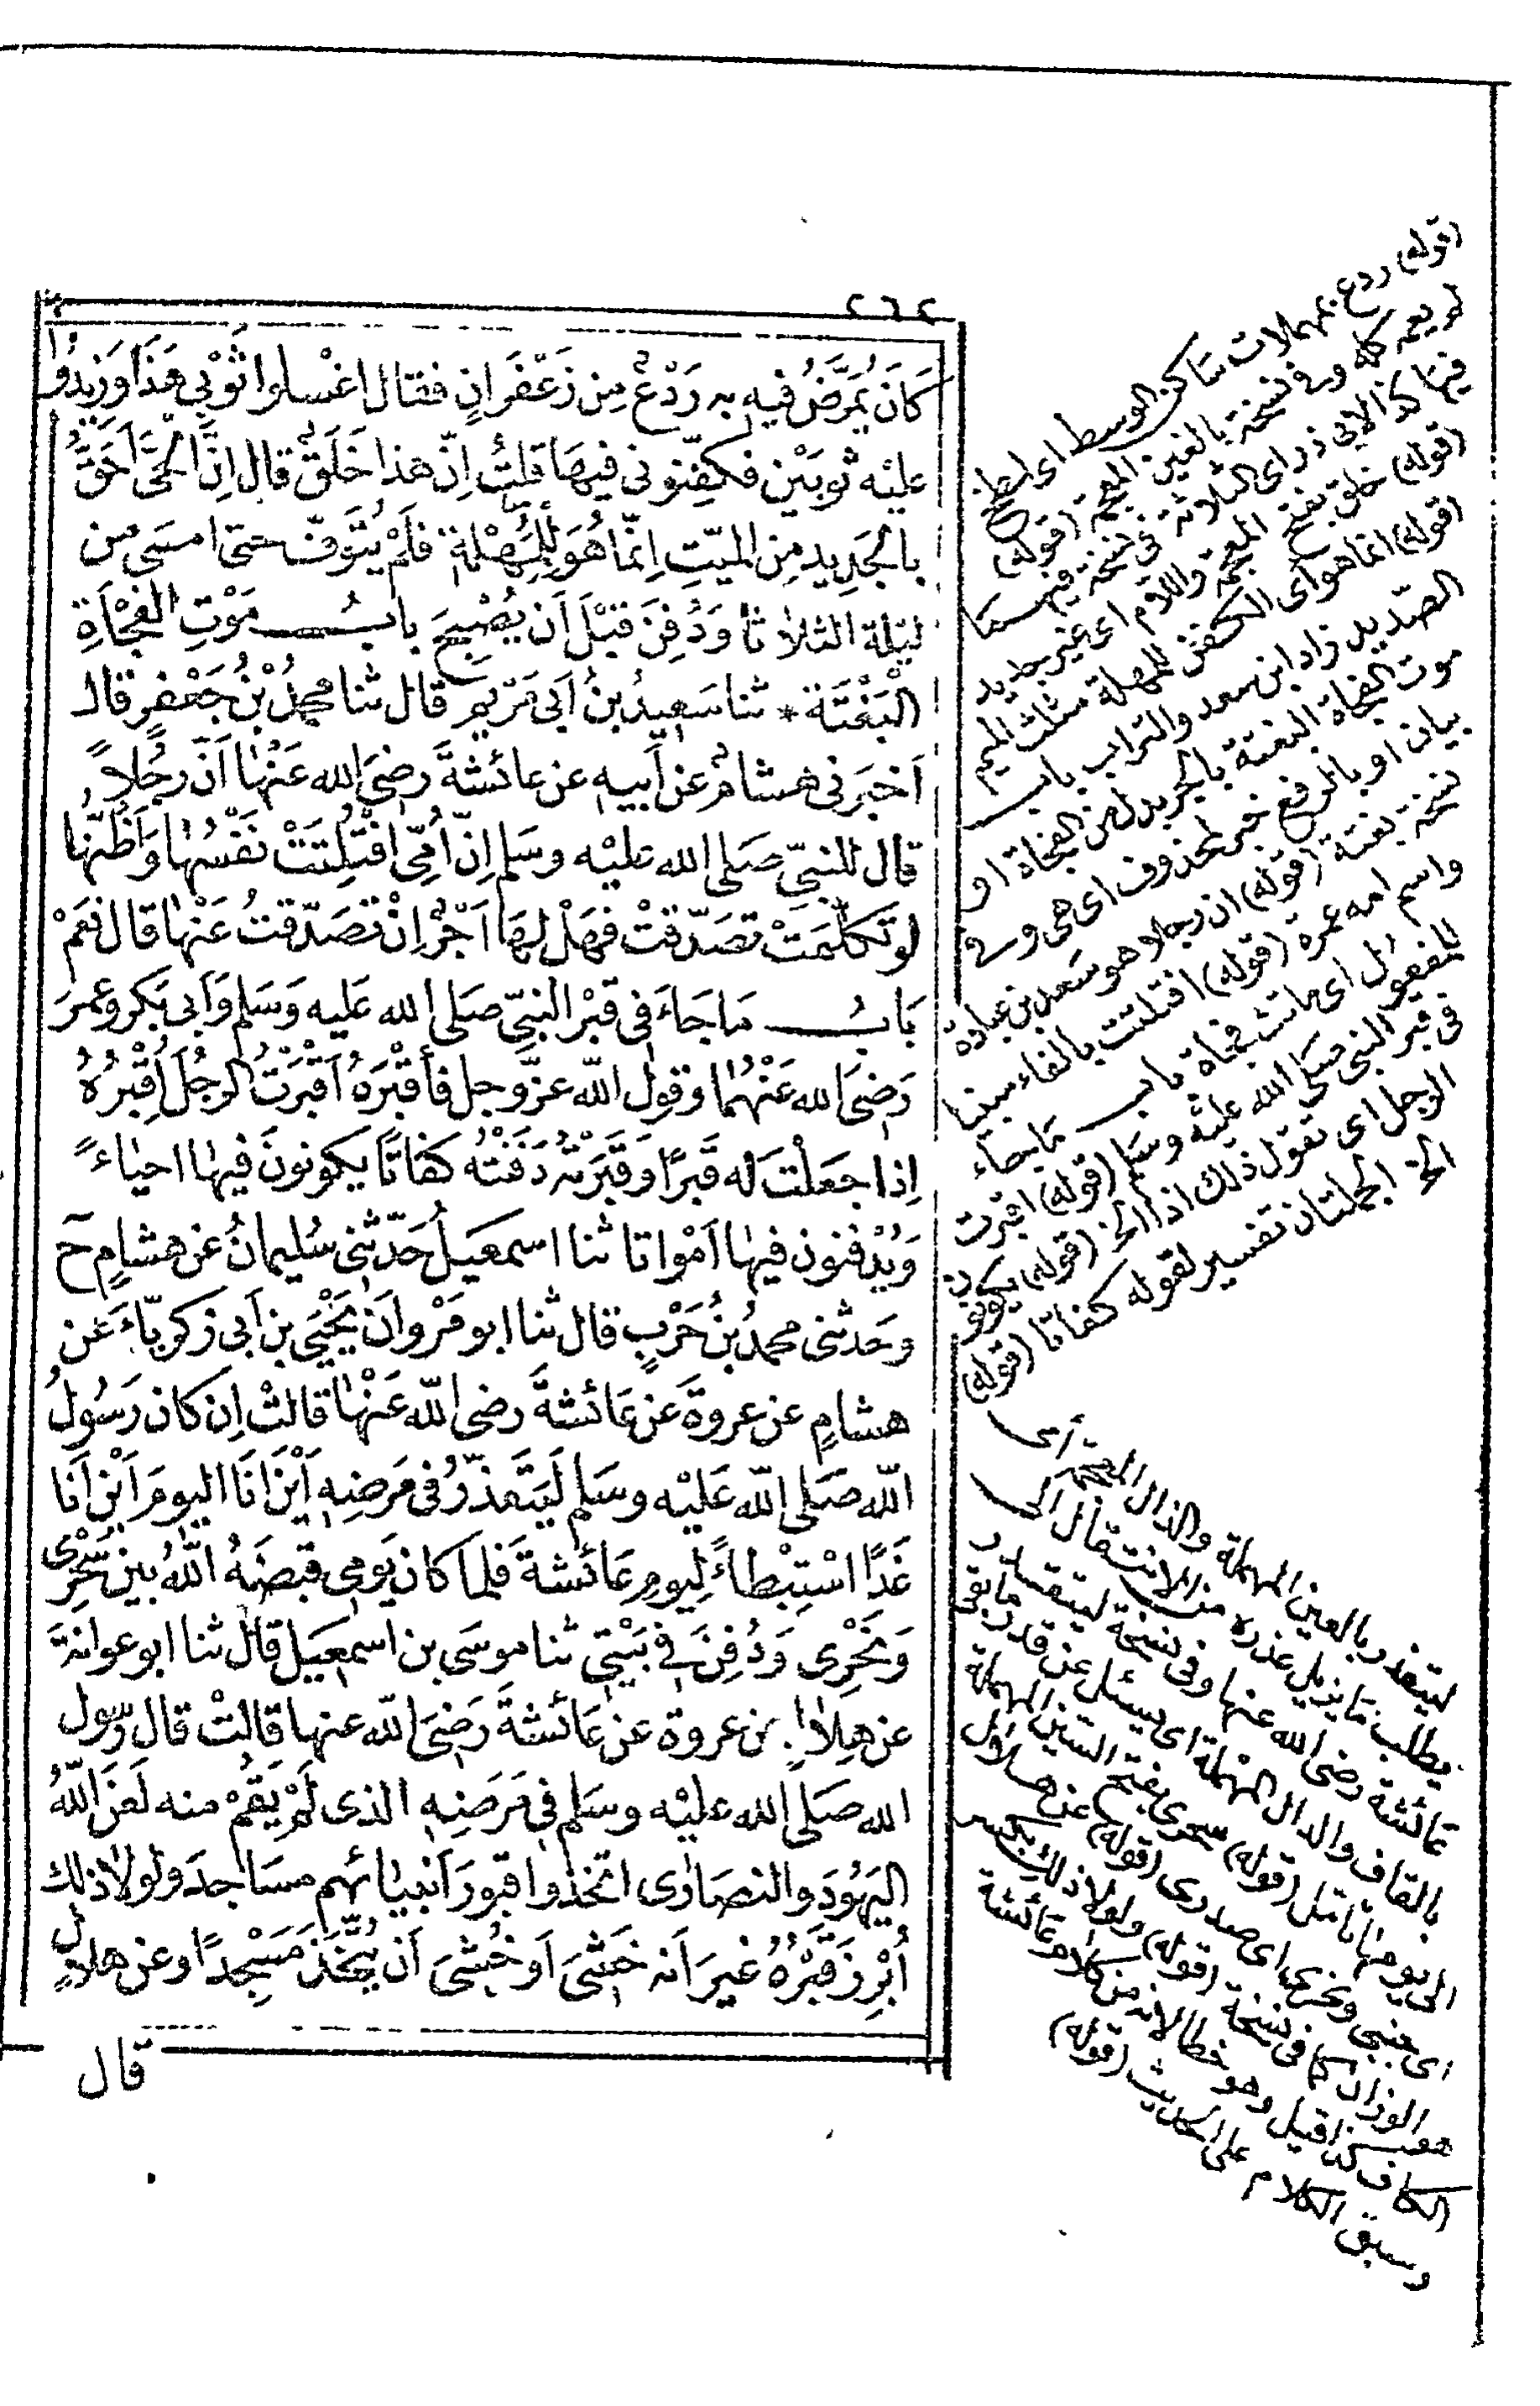 ٢٦٢
كَانَ يُمَرَّضُ فيه به رَدْعٌ مِن زَعْفَرانٍ فقال اغسلوا ثَوْبِي هَذَا وَزِيدُوا
عليْه ثوبَيْن فكفّنوني فيهَا قلتُ اِنّ هذا خَلَقٌ قال اِنَّ الحَيَّ اَحَقُّ
بالجَدِيد مِن الميّتِ اِنّما هُوَ لِلْمُهْلَةِ فلَمْ يُتَوَفّ حتى امسَى من
ليْلة الثلاثا وَدُفِنَ قبْلَ اَن يصْبِحَ بابُ مَوْتِ الفَجْأَةِ
البَغْتَة * ثنا سَعِيدُ بنُ اَبى مَرْيم قال ثنا محمدُ بْنُ جَعْفرٍ قال
اَخبَرَنى هشامٌ عن اَبيه عن عائشةَ رضىَ الله عَنْهٰا اَنّ رجُلاً
قال للنبىّ صَلى الله عليْه وسَلم اِنّ اُمّى افْتُلِتَتْ نَفْسُهٰا وَاَظُنّهٰا
لو تَكلّمَتْ تصَدّقتْ فهَلْ لهَا اَجْرٌ اِنْ تَصَدّقتُ عَنْهٰا قال نعَمْ
بَابُ مَا جَاءَ فى قبْر النبىّ صَلى الله عَليه وَسَلم وَاَبى بَكر وعمرَ
رَضىَ الله عَنْهُمَا وقول اللّه عزّوجل فأقْبَرَهُ اَقْبَرْتُ الرجُلَ اُقْبِرُهُ
اِذا جعَلْتَ له قَبرًا وقَبَرْتهُ دَفَنْتُه كفاتًا يكونونَ فيهٰا احياءً
وَيُدْفنون فيهٰا اَمْواتا ثنا اسمعيلُ حَدّثنى سُليمانُ عن هشامٍ ح
وحَدثنى محمدُ بنُ حَرْبٍ قال ثنا ابو مَرْوانَ يَحْيَى بن اَبى زكريّاءَ عن
هشامٍ عن عروةَ عن عَائشةَ رضى اللّه عَنْهٰا قالتْ اِن كان رَسُولُ
اللّه صَلى اللّه عَليْه وسَلم لَيَتَعَذّرُ فى مَرضِه اَيْنَ اَنَا اليومَ اَيْنَ اَنا
غَدًا اسْتِبْطاءً لِيومِ عَائشةَ فلما كان يَومى قبضَهُ اللّهُ بين سَحْرِى
وَنَحْرِى وَدُفِنَ فى بَيْتِى ثنا موسَى بن اسمعيَل قال ثنا ابو عوانةَ
عن هِلالٍ عن عروة عن عَائشةَ رَضىَ اللّه عنها قالتْ قال رسول
الله صَلى الله عليْه وسَلم فى مَرَضِه الذى لَمْ يَقُمْ منه لَعَنَ اللّهُ
اليَهُودَ والنصَارٰى اتخذُوا قبورَ اَنبيائهم مسَاجدَ ولولا ذلك
اُبْرِزَ قَبْرُهُ غيرَ اَنه خَشَىَ اَو خُشىَ اَن يُتَّخَذَ مَسْجِدًا وعن هلالٍ
قال
(قوله) ردع بمهملات ساكن الوسط اى لطخ
لم يعمه كله وفى نسخة بالغين المعجمة (قوله)
فيها كذا لابى ذر اى الثلاثة وفى نسخة فيهما
(قوله) خلق بفتح المعجمة واللام اى غير جديد
(قوله) انما هو اى الكفن للمهلة مثلث الميم
الصّديد زاد ابن سعد والتراب باب
موت الفجأة البغتة بالجر بدل من الفجأة او
بيان او بالرفع خبر لمحذوف اى هى وفى
نسخة بغتة (قوله) ان رجلا هو سعد بن عبادة
واسم امه عمرة (قوله) افتلتت بالفاء مبنيا
للمفعول اى ماتت فجأة باب ما جاء
فى قبر النبى صلى الله عليه وسلم (قوله) اقبرت
الرجل اى تقول ذلك اذا الخ (قوله) يكونون
الخ الجملتان تفسير لقوله كفاتا (قوله)
ليتعذر بالعين المهملة والذال المعجمة اى
يطلب ما يزيل عذره من الانتقال الى
عائشة رضى الله عنها وفى نسخة ليتقدر
بالقاف والدال المهملة اى يسئل عن قدر ما بقى
الى يومها تامّل (قوله) سحرى بفتح السين المهملة
اى جنبى ونحرى اى صدرى (قوله) عن هلال
الوزان كما فى نسخة (قوله) ولولا ذلك بكسر
الكاف كذا قيل وهو خطا لانه من كلام عائشة
وسبق الكلام على الحديث (قوله)